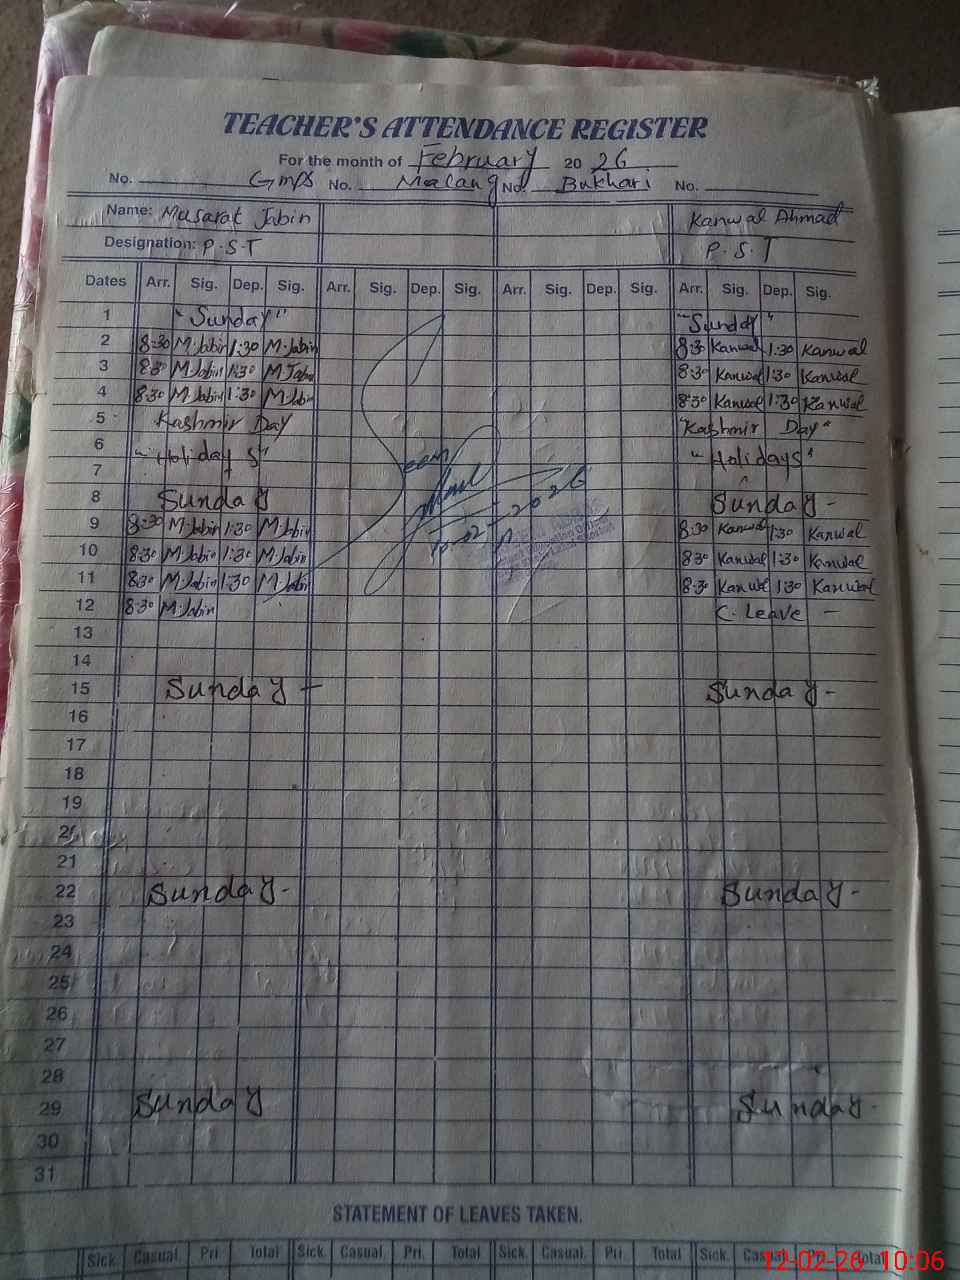 TEACHER'S ATTENDANCE REGISTER
For the month of February 20 26
No. Gmps No. Malang No. Bukhari No.
Name: Musarat Jabin Kanwal Ahmad
Designation: P.S.T P.S.T
Dates Arr. Sig. Dep. Sig. Arr. Sig. Dep. Sig. Arr. Sig. Dep. Sig. Arr. Sig. Dep. Sig.
1 "Sunday" "Sunday"
2 8:30 M.Jabin 1:30 M.Jabin 8:30 Kanwal 1:30 Kanwal
3 8:30 M.Jabin 1:30 M.Jabin 8:30 Kanwal 1:30 Kanwal
4 8:30 M.Jabin 1:30 M.Jabin 8:30 Kanwal 1:30 Kanwal
5 Kashmir Day "Kashmir Day"
6 "Holidays" "Holidays"
7
8 Sunday Sunday -
9 8:30 M.Jabin 1:30 M.Jabin 8:30 Kanwal 1:30 Kanwal
10-02-2026
10 8:30 M.Jabin 1:30 M.Jabin 8:30 Kanwal 1:30 Kanwal
11 8:30 M.Jabin 1:30 M.Jabin 8:30 Kanwal 1:30 Kanwal
12 8:30 M.Jabin C. Leave -
13
14
15 Sunday - Sunday -
16
17
18
19
20
21
22 Sunday - Sunday -
23
24
25
26
27
28
29 Sunday Sunday -
30
31
STATEMENT OF LEAVES TAKEN.
Sick. Casual. Pri. Total Sick. Casual. Pri. Total Sick. Casual. Pri. Total Sick. Casual. Pri. Total
12-02-26 10:06